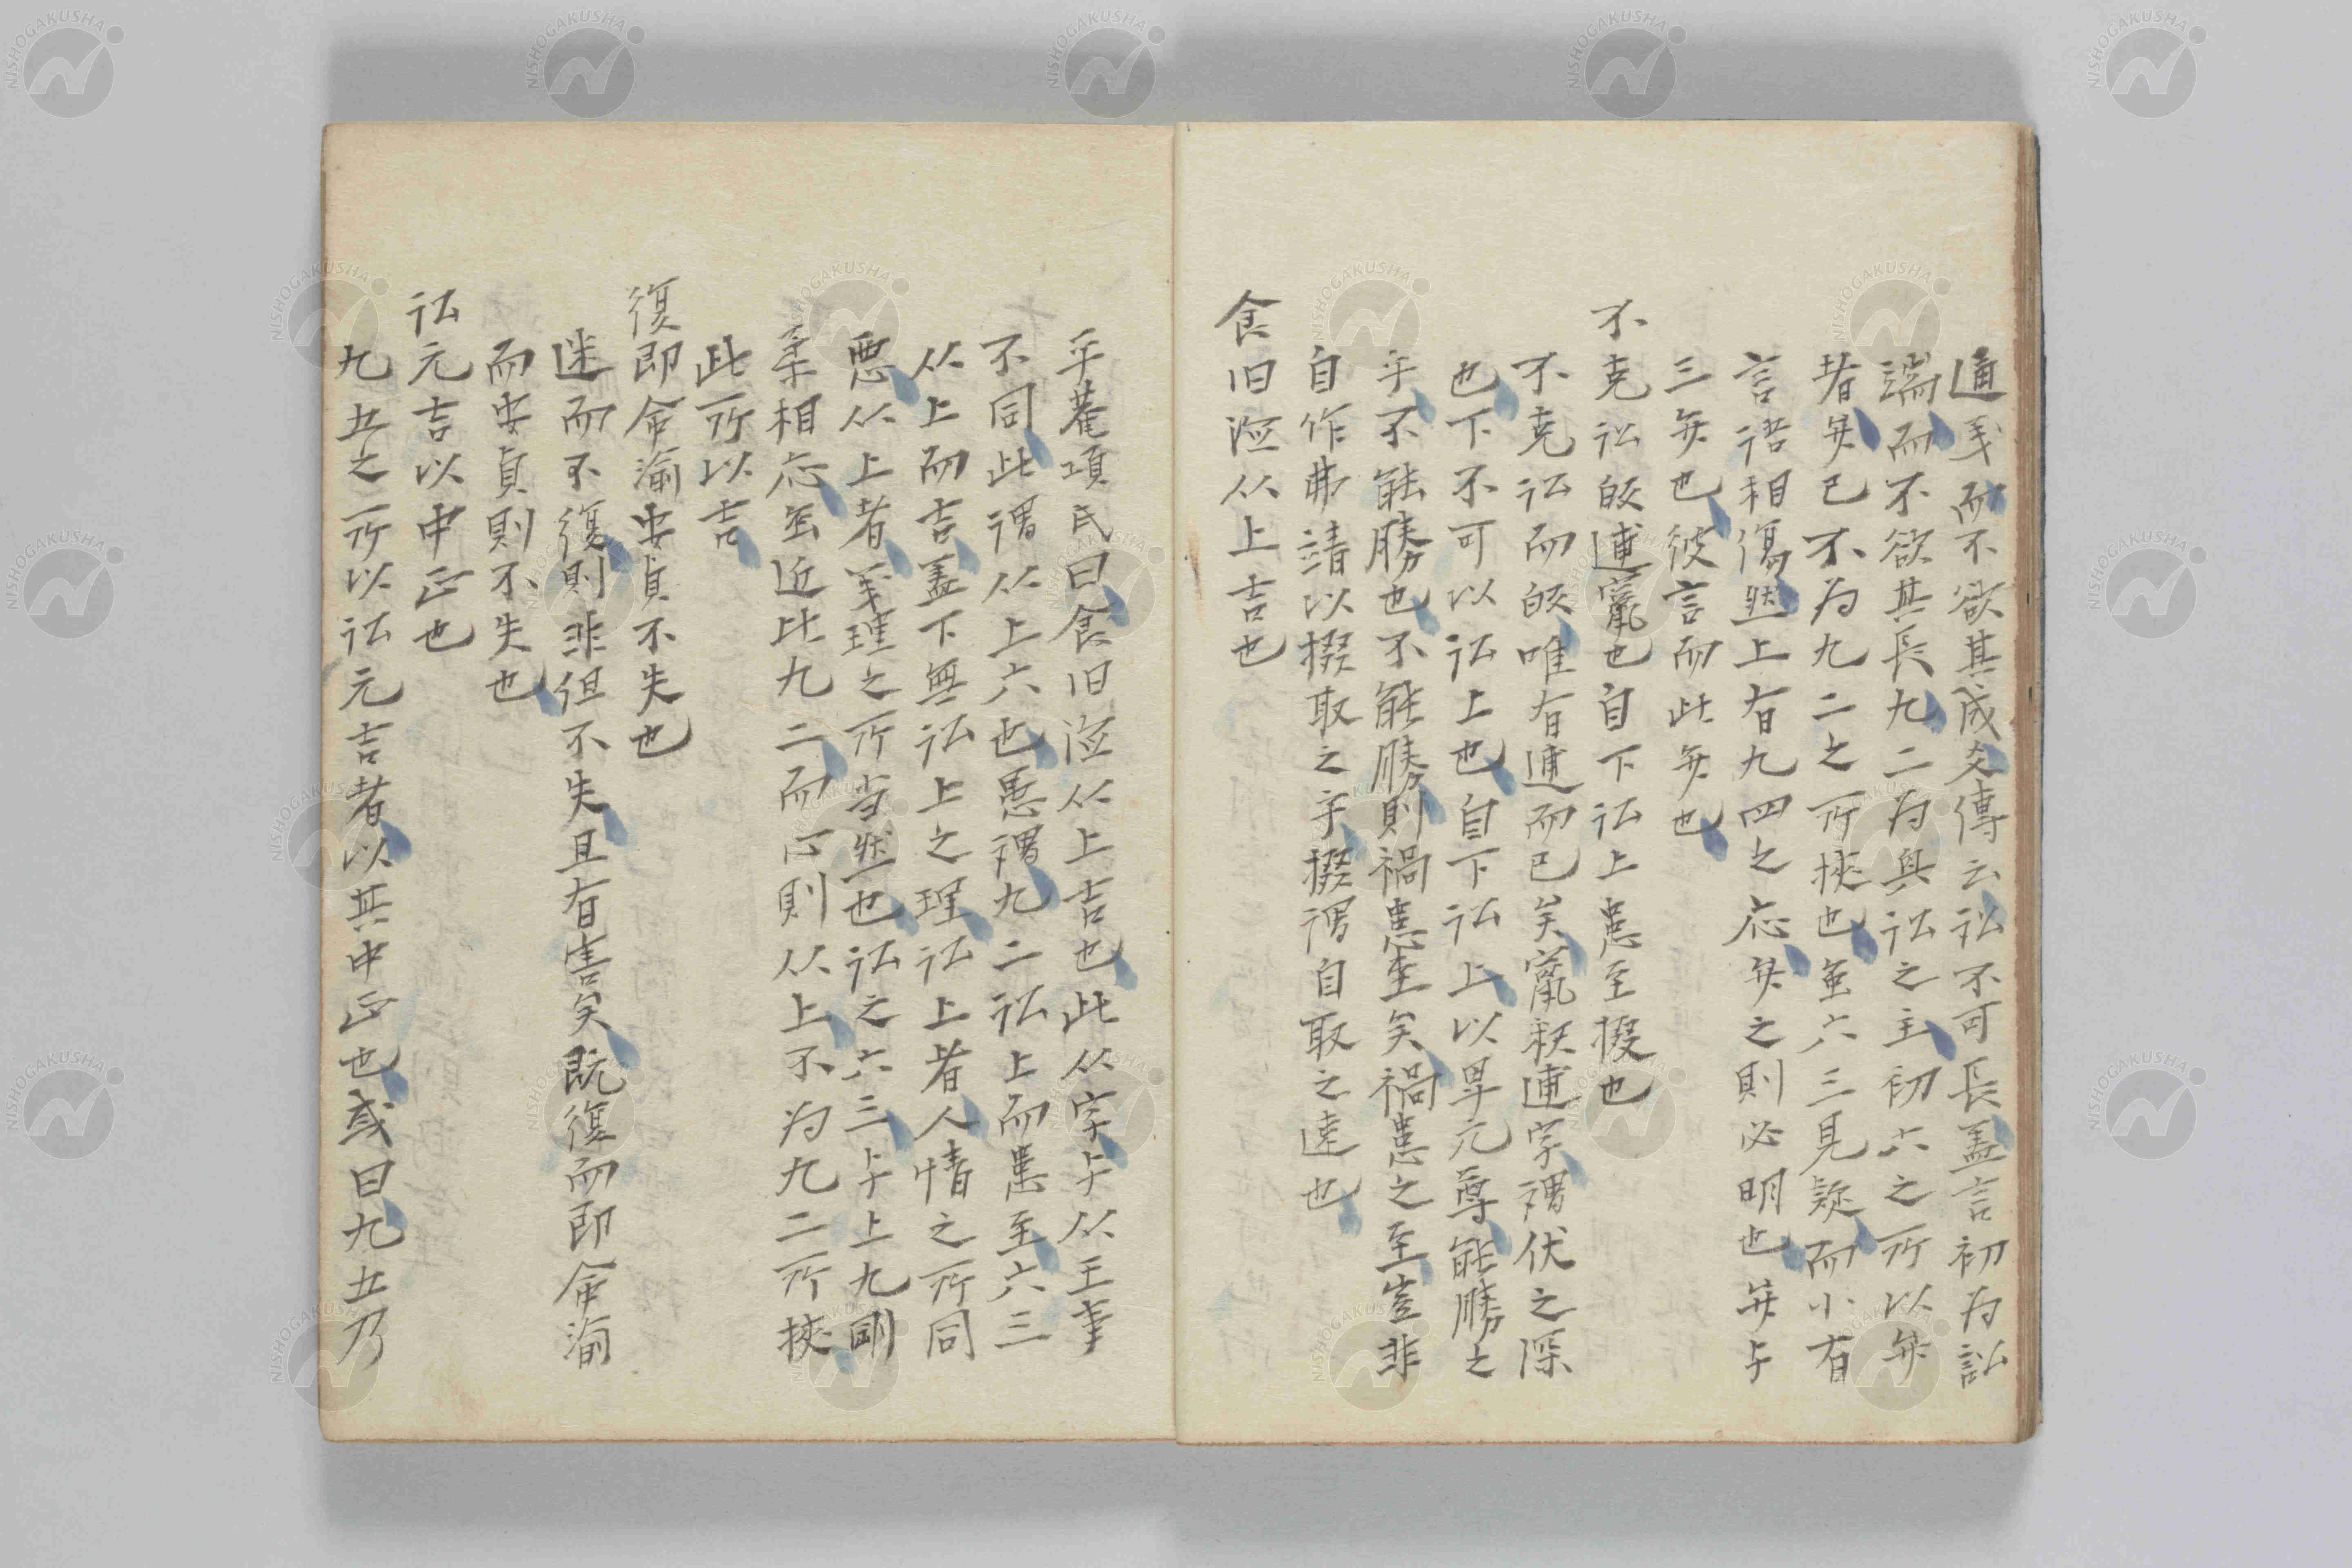 通義而不欲其成爻傳云訟不可長盖言初为訟
端而不欲其長九二为與訟之主初六之所以弁
者矣已不为九二之所挾也虽六三見疑而小有
言語相傷然上有九四之応弁之則必明也弁与
三弁也彼言而此弁也
不克訟的逋竄也自下訟上患至掇也
不克訟而的唯有逋而已矣竄釈逋字謂伏之深
也下不可以訟上也自下訟上以卑亢尊能勝之
乎不能勝也不能勝則禍患至矣禍患之至豈非
自作弗靖以掇取之乎掇謂自取之速也
食旧徳从上吉也
平菴項氏曰食旧徳从上吉也此从字与从王事
不同此謂从上六也患謂九二訟上而患至六三
从上而吉盖下無訟上之理訟上者人情之所同
悪从上者義理之所当然也訟之六三与上九剛
柔相応虽近比九二而心則从上不为九二所挾
此所以吉
復即命渝安貞不失也
迷而不復則非但不失且有害矣既復而即命渝
而安貞則不失也
訟元吉以中正也
九五之所以訟元吉者以其中正也或曰九五乃
NISHOGAKUSHA